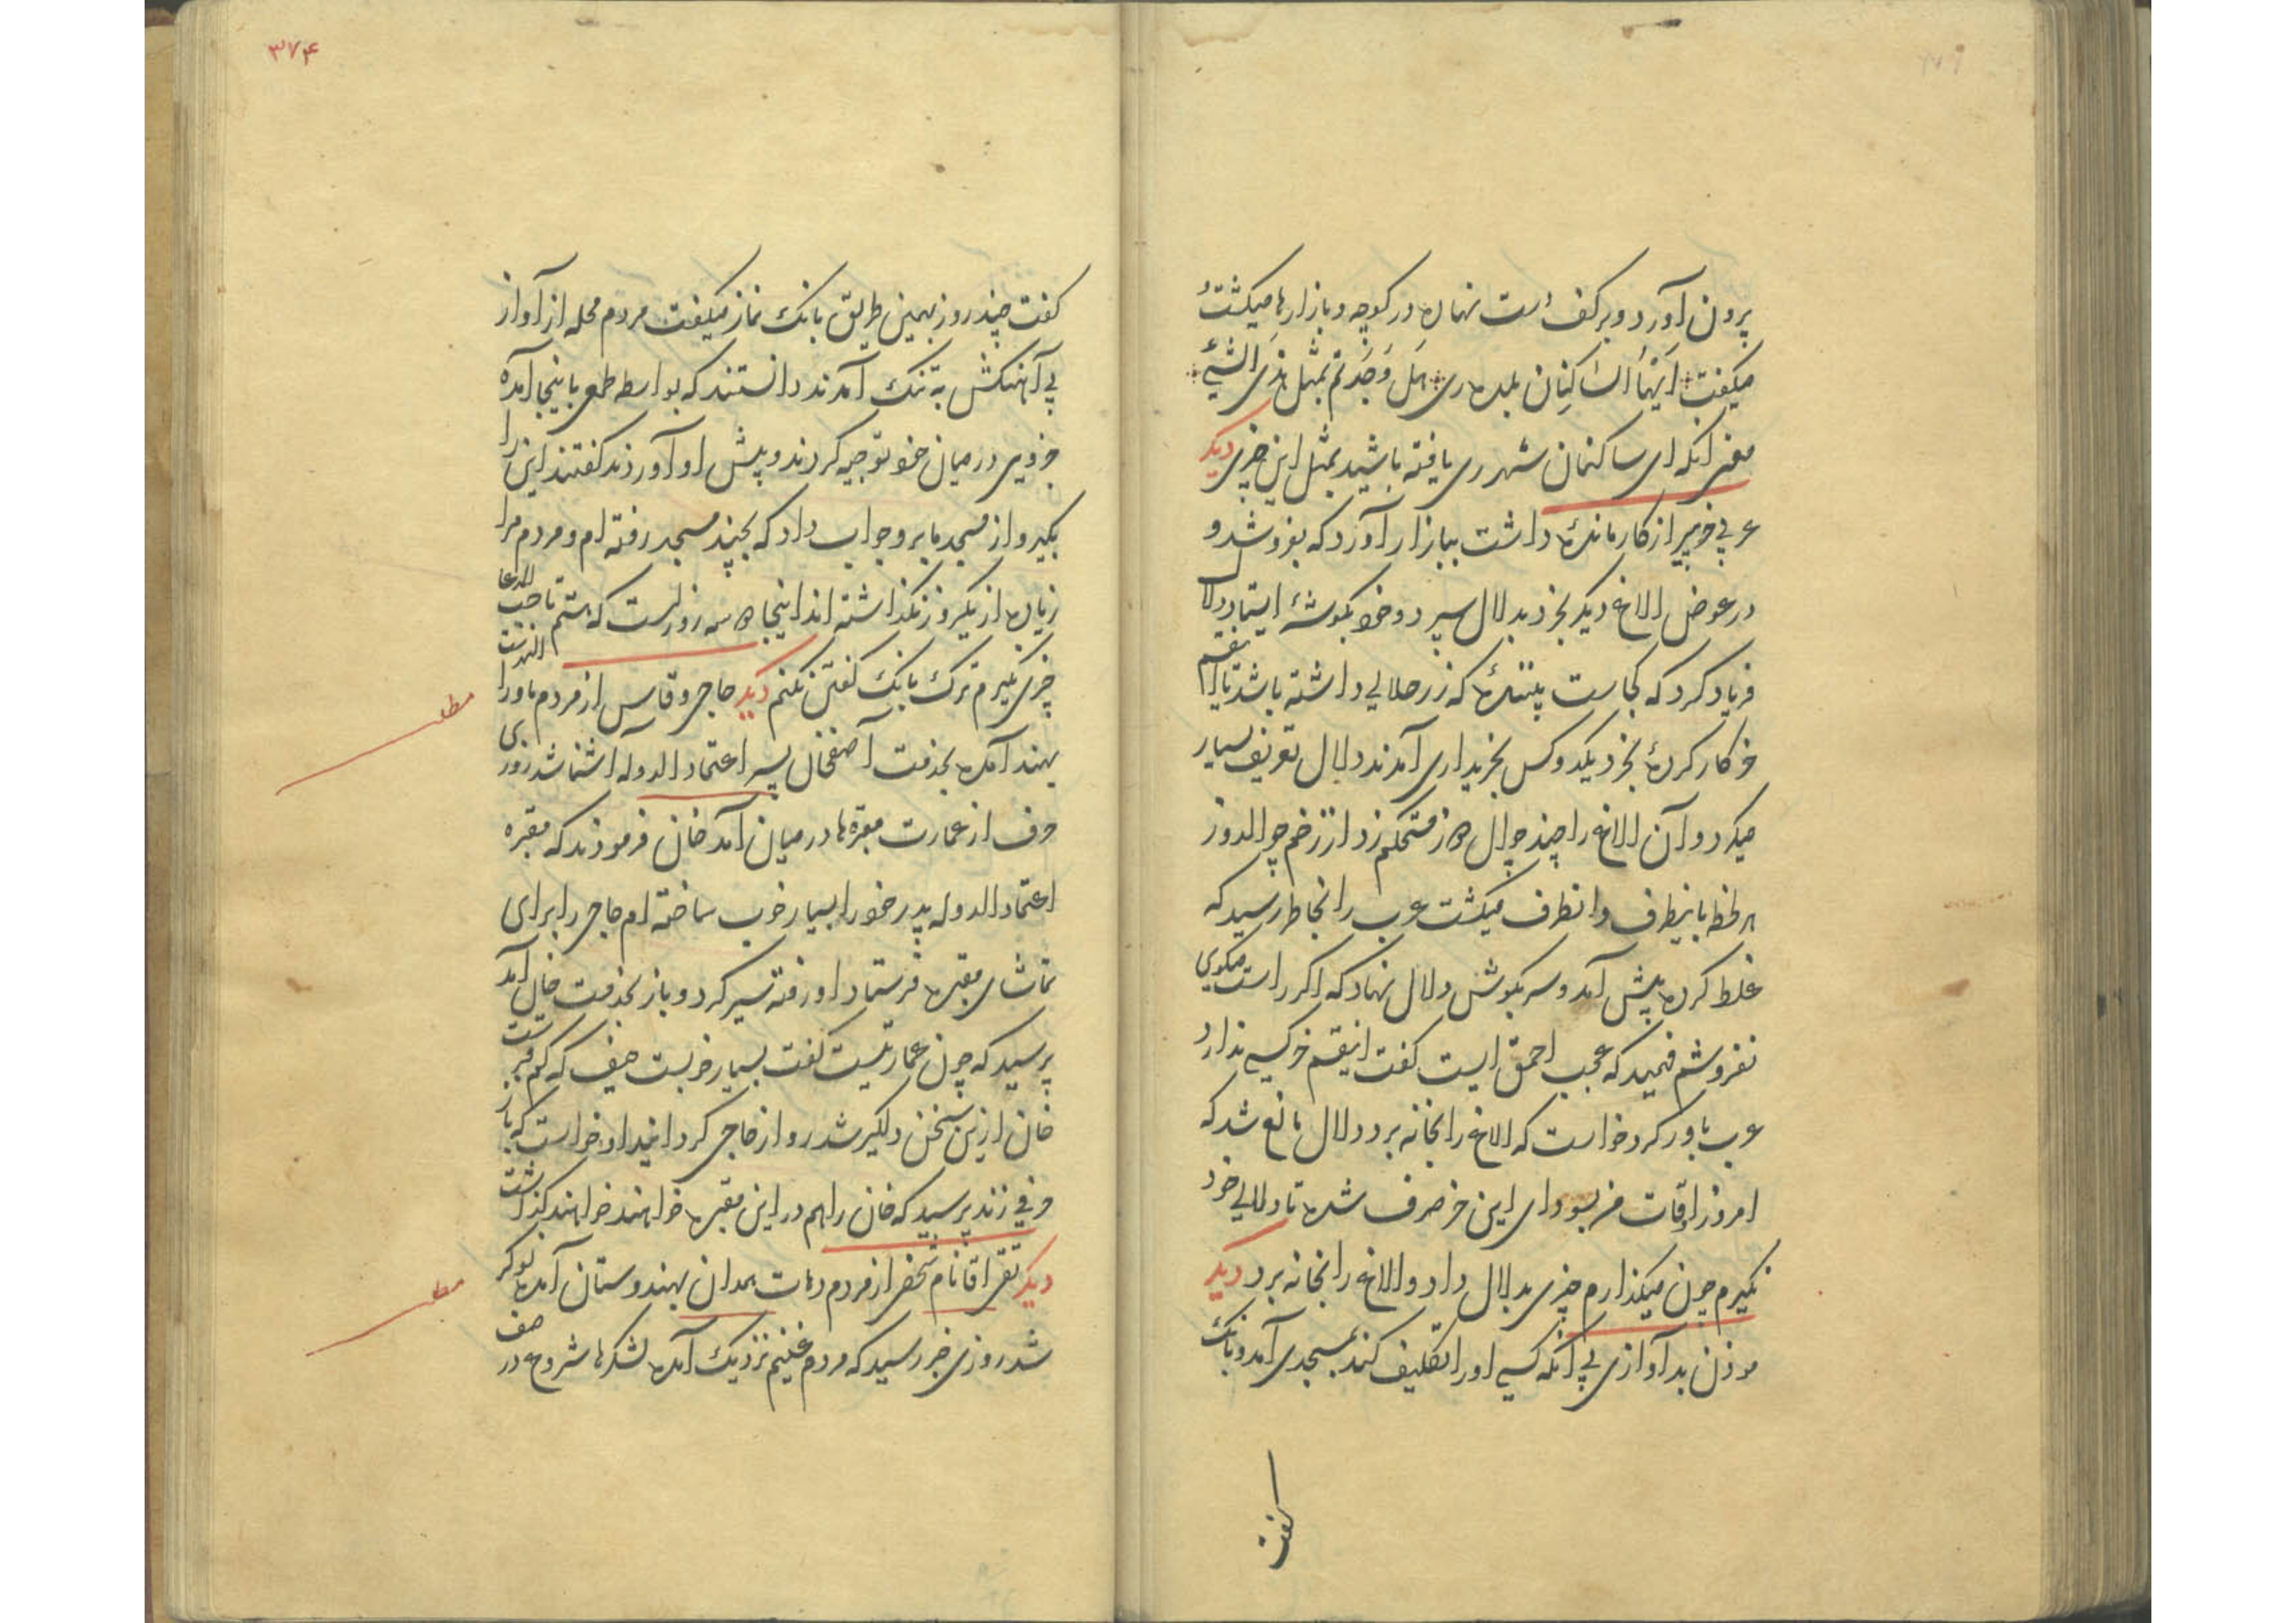 برون آورد و بر کف دست نهاده در کوچه و بازارها میکشت
میکفت ایها الساکنان بلده ری هل وجدتم بمثل هذی الشیء
معنی آنکه ای ساکنان شهر ری یافته باشید بمثل این چیزی دیکر
عربی خر پیر از کار مانده داشت ببازار آورد که بفروشد و
در عوض الاغ دیکر بخرد بدلال سپرد و خود بکوشه ایستاد دلال
فریاد کرد که کجاست که زر حلالی داشته باشد تا اینقسم
خر کار کرده بخرد یکدو کس بخریداری آمدند دلال تعریف بسیار
میکرد و آن الاغ را چند جوال دوز مستحکم زد از زخم جوالدوز
هر لحظه باینطرف و آنطرف میکشت عرب را بخاطر رسید که
غلط کرده پیش آمد و سر بکوش دلال نهاد که اکر راست میکوی
نفروشم فهمید که عجب احمق ایست کفت اینقسم خر کسی ندارد
عرب باور کرد خواست که الاغ را بخانه برد دلال مانع شد که
امروز اوقات من بسودای این خر صرف شده تا دلالی خود
نکیرم چون میکذارم چیزی بدلال داد و الاغ را بخانه برد دیکر
موذن بدآوازی بی آنکه کسی او را تکلیف کند بمسجدی آمد و بانک
کفت
۳۷۴
کفت چند روز بهمین طریق بانک نماز میکفت مردم محله از آواز
بی آهنکش به تنک آمدند دانستند که بواسطه طمع باینجا آمده
جزوی در میان خود توجیه کردند و پیش او آوردند کفتند این را
بکیر و از مسجد ما برو جواب داد که بچند مسجد رفته ام و مردم مرا
زیاده از یکروز نکذاشته اند اینجا ده سه روز است که هستم تا حسب المدعا
چیزی نکیرم ترک بانک کفتن نکنم دیکر حاجی وقاس از مردم ماوراء النهرست
بهند آمده بخدمت آصفخان پسر اعتماد الدوله آشنا شد روزی
حرف از عمارت مقبرها در میان آمد خان فرمودند که مقبره
اعتماد الدوله پدر خود را بسیار خوب ساخته ام حاجی را برای
تماشای مقبره فرستاد او رفته سیر کرد و باز بخدمت خان آمد
پرسید که چون عمارتیست کفت بسیار خوبست حیف که کم قبرست
خان ازین سخن دلکیر شد رو از حاجی کردانید او خواست که باز
حرفی زند پرسید که خان را هم در این مقبره خواهند خواهند کذاشت
دیکر تقی آقا نام شخص از مردم دهات همدان بهندوستان آمده نوکر
شد روزی خبر رسید که مردم غنیم نزدیک آمده لشکرها شروع در صف
مطلب
مطلب